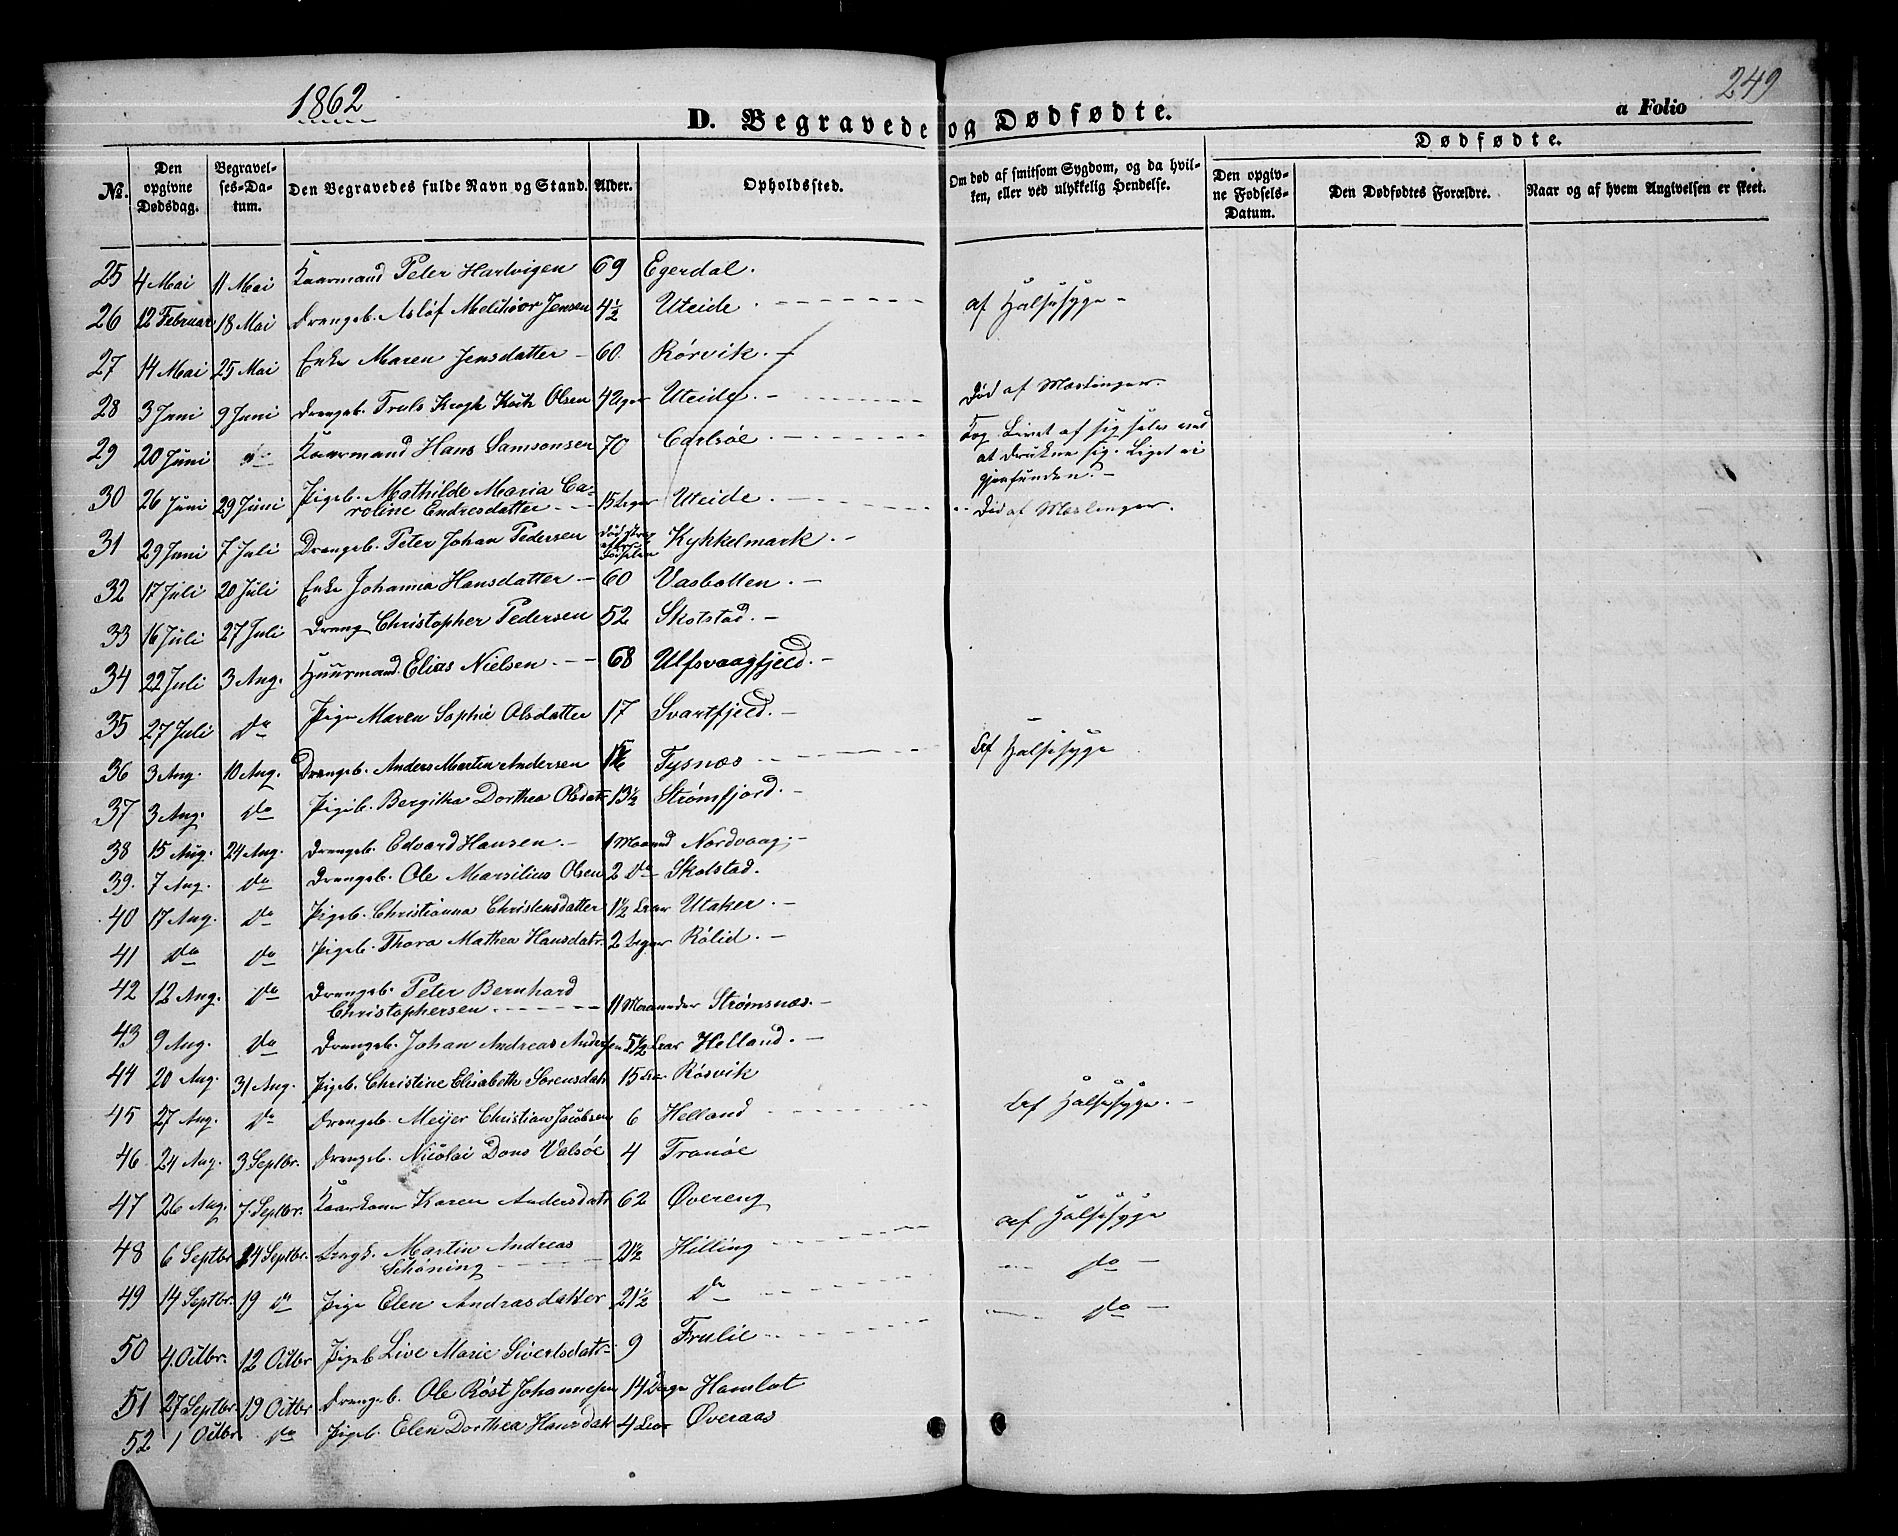 1862
D. Begravede og Dødfødte.
a Folio 249
Dødfødte.
No. Den opgivne Dødsdag. Begravelses-Datum. Den Begravedes fulde Navn og Stand. Alder. Opholdssted. Om død af smitsom Sygdom, og da hvilken, eller ved ulykkelig Hendelse. Den opgivne Fødsels-Datum. Den Dødfødtes Forældre. Naar og af hvem Angivelsen er skeet.
25 4 Mai 11 Mai Kaarmand Peter Hartvigen 69 Egerdal.
26 12 Februar 18 Mai Drengeb. Asløf Melthior Jensen 4½ Uteide af Halsesyge
27 14 Mai 25 Mai Enke Maren Jensdatter 60 Rørvik.
28 3 Juni 9 Juni Drengeb. Truls Krogh Olsen 4 Uger Uteide. Død af Mæslinger.
29 20 Juni do Kaarmand Hans Samsonsen 70 Carlsøe Tog Livet af sig selv ved
at drukne sig. Liget ei
gjenfunden.
30 26 Juni 29 Juni Pigeb. Mathilde Maria Ca-
roline Endresdatter 15 Uger Uteide Død af Mæslinger.
31 29 Juni 7 Juli Drengeb. Peter Johan Pedersen Død strax efter Fødselen Kykkelmark.
32 17 Juli 20 Juli Enke Johanna Hansdatter 60 Vasbotten.
33 16 Juli 27 Juli Dreng Christopher Pedersen 52 Skotstad.
34 22 Juli 3 Aug. Huusmand Elias Nielsen 68 Ulfsvaagfjeld.
35 27 Juli do Pige Maren Sophie Olsdatter 17 Svartfjeld.
36 3 Aug. 10 Aug. Drengeb. Anders Martin Andersen Tysnæs Af Halsesyge
37 3 Aug. do Pigeb. Bergitha Dorthea Olsdatr 13½ Strømfjord.
38 15 Aug. 24 Aug. Drengeb. Edvard Hansen. 1 Maaned Nordvaag.
39. 7 Aug. do Drengeb. Ole Marsilius Olsen 2 do Skotstad.
40 17 Aug. do Pigeb. Christianna Christensdatter 1½ Aar Utaker.
41 do do Pigeb. Thora Mathea Hansdatr. 2 Uger Rølid.
42 12 Aug. do Drengeb. Peter Bernhard
Christophersen 11 Maaneder Strømsnæs.
43 9 Aug. do Drengeb. Johan Andreas Andersen 5½ Aar Helland.
44 20 Aug. 31 Aug. Pigeb. Christine Elisabeth Sørensdatr 15 Aar Røsvik
45 27 Aug. do Drengeb. Meyer Christian Jacobsen 6 Helland Af Halsesyge.
46 24 Aug. 3 Septbr. Drengeb. Nicolai Dons Valsøe 4 Tranøe
47 26 Aug. 7 Septbr. Kaarkone Karen Andersdatr 62 Øvereng
48 6 Septbr 14 Septbr. Drngb. Martin Andreas
Schøning 2½ Hilling af Halsesyge
49 14 Septbr. 19 do Pige Elen Andrasdatter 21½ do do
50 4. Octbr. 12 Octbr Pigeb Live Marie Sivertsdatr. 9 Frulie do
51 27 Septbr. 19 Octbr Drengeb. Ole Røst Johannesen 14 Dage Hamlot
52 1 Octbr do Pigeb. Elen Dorthea Hansdatr 4 Aar Øveraas